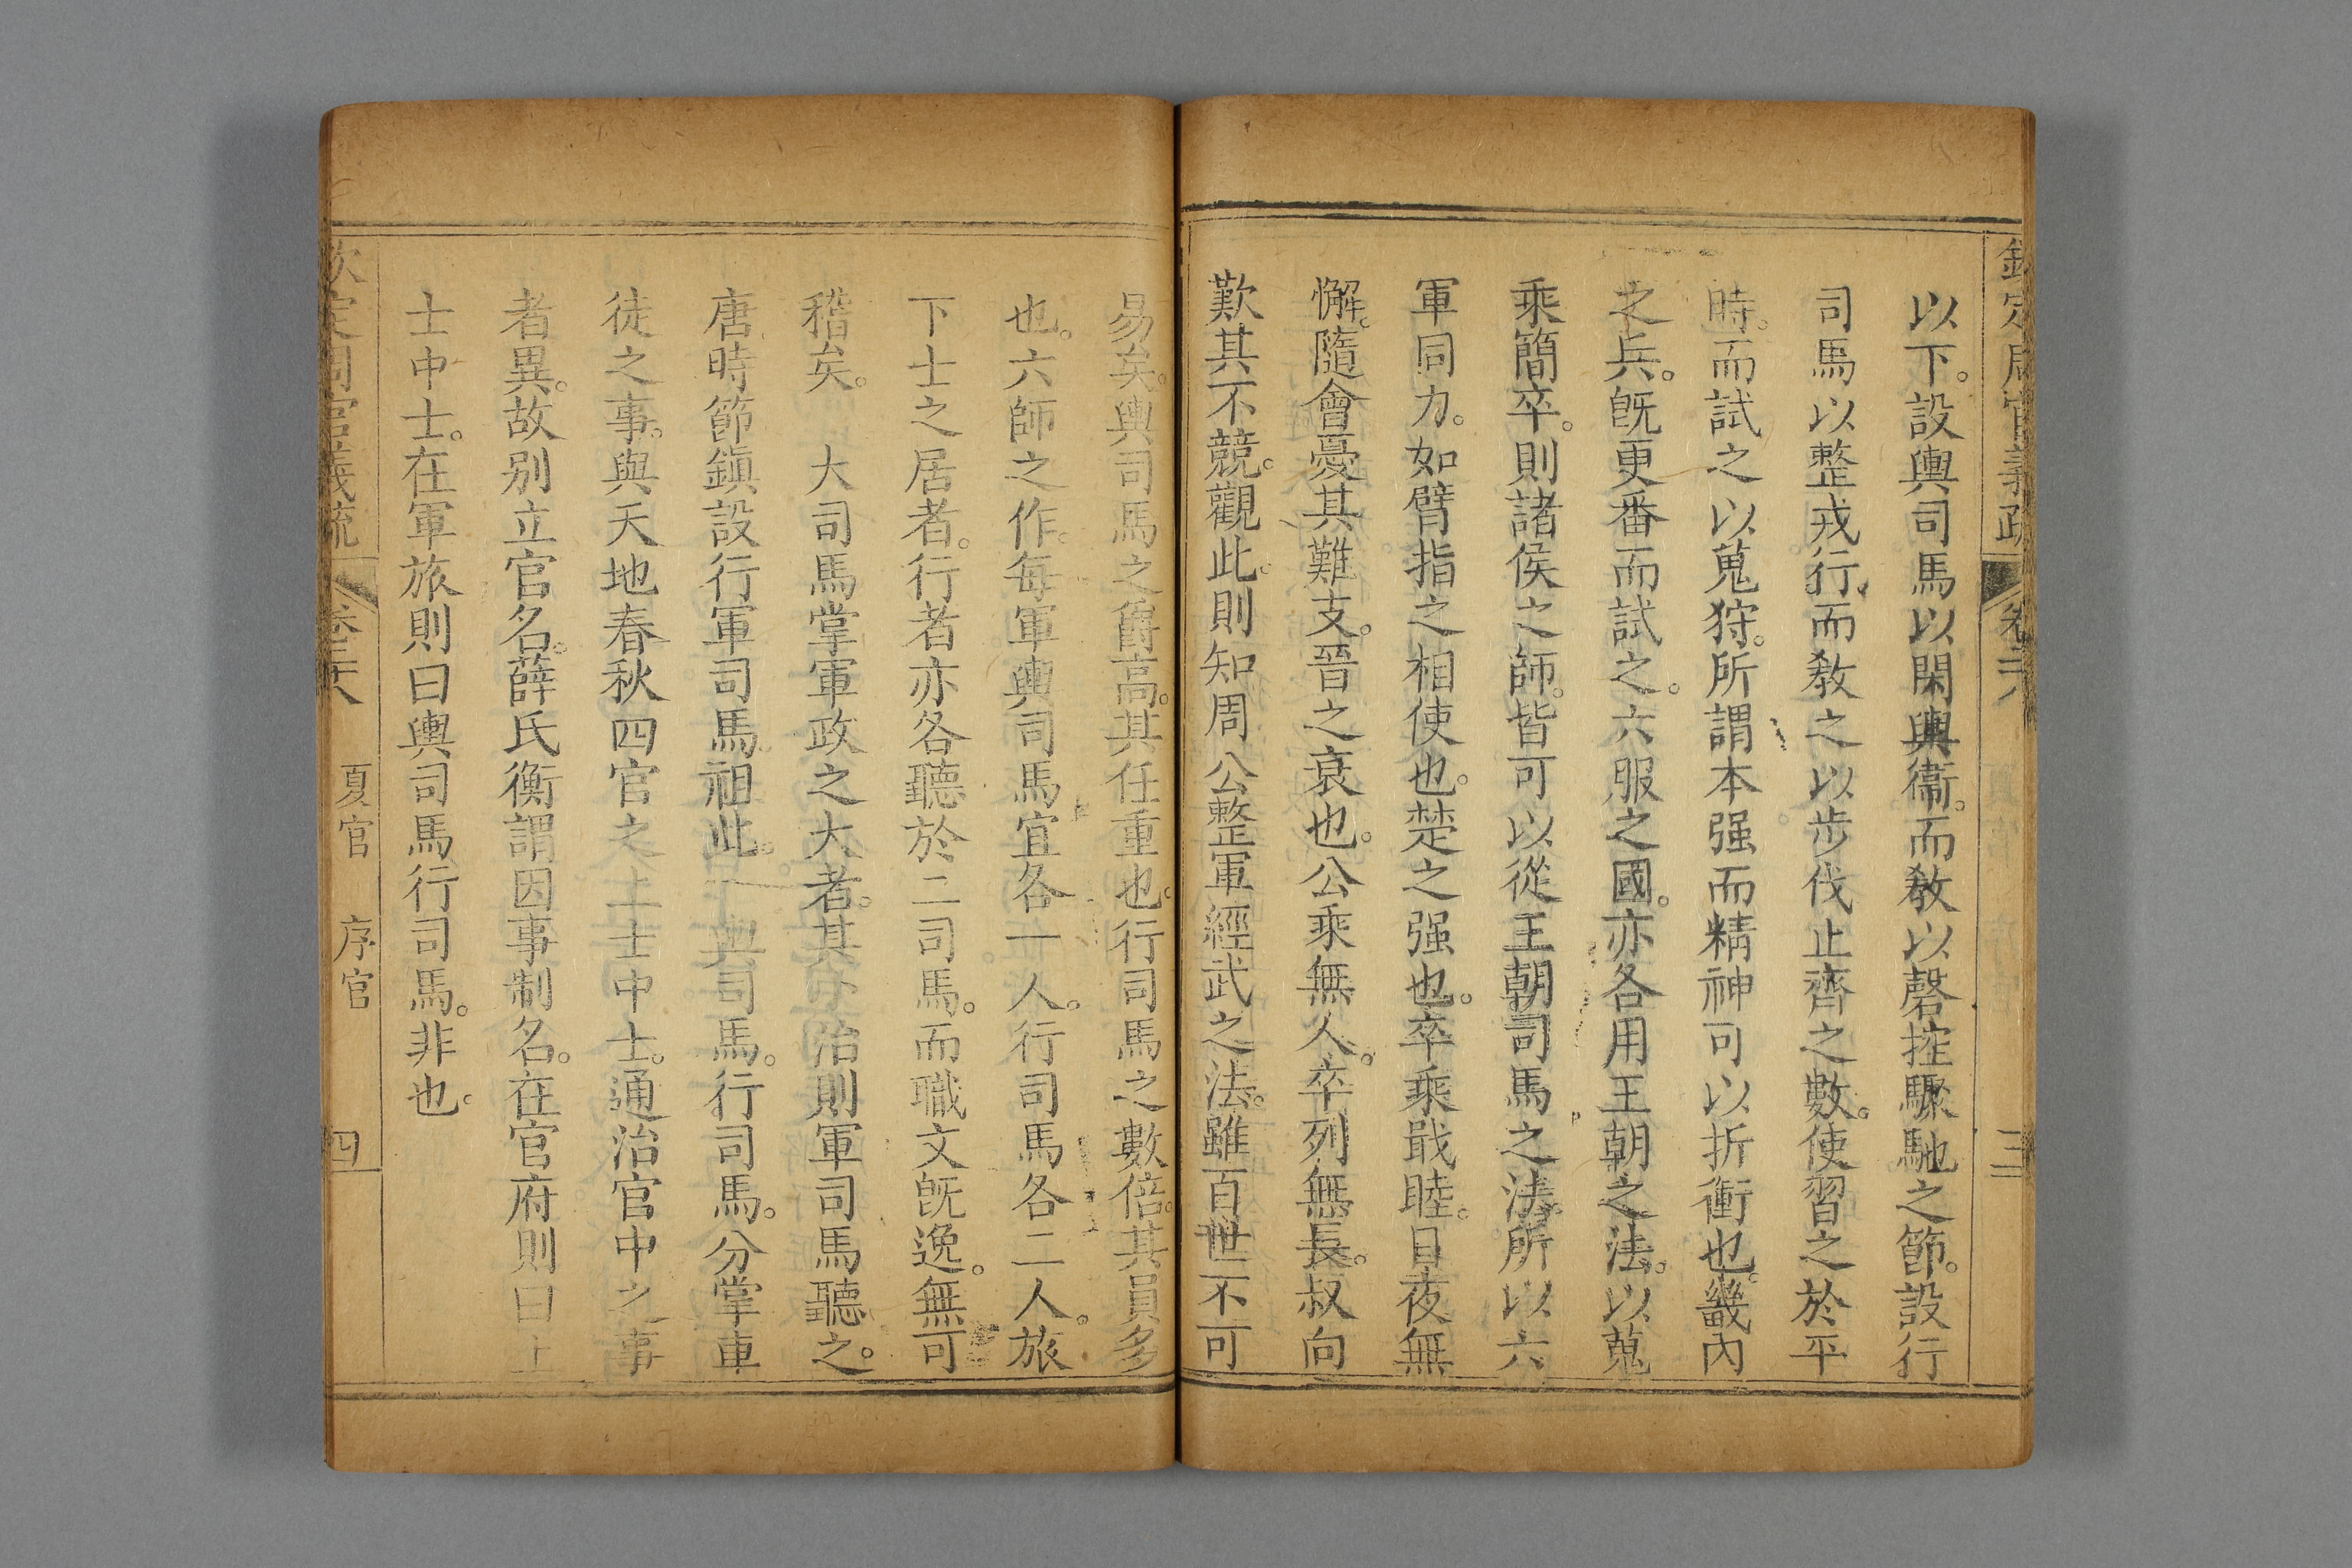 欽定周官義疏 卷二十八 三
以下。設輿司馬以閑輿衞。而敎以磬控驟馳之節。設行
司馬以整戎行。而敎之以步伐止齊之數。使習之於平
時。而試之以蒐狩。所謂本强而精神可以折衝也。畿內
之兵。旣更番而試之。六服之國。亦各用王朝之法。以蒐
乘簡卒。則諸侯之師。皆可以從王朝司馬之法。所以六
軍同力。如臂指之相使也。楚之强也。卒乘戢睦。日夜無
懈。隨會憂其難支。晉之衰也。公乘無人。卒列無長。叔向
歎其不競。觀此。則知周公整軍經武之法。雖百世不可
易矣。輿司馬之爵高。其任重也。行司馬之數倍。其員多
也。六師之作。每軍輿司馬宜各一人。行司馬各二人。旅
下士之居者。行者亦各聽於二司馬。而職文旣逸。無可
稽矣。 大司馬掌軍政之大者。其小治則軍司馬聽之。
唐時節鎭設行軍司馬祖此。 輿司馬。行司馬。分掌車
徒之事。與天地春秋四官之上士中士。通治官中之事
者異。故別立官名。薛氏衡謂因事制名。在官府則曰上
士中士。在軍旅則曰輿司馬行司馬。非也。
欽定周官義疏 卷二十八 夏官 序官 四